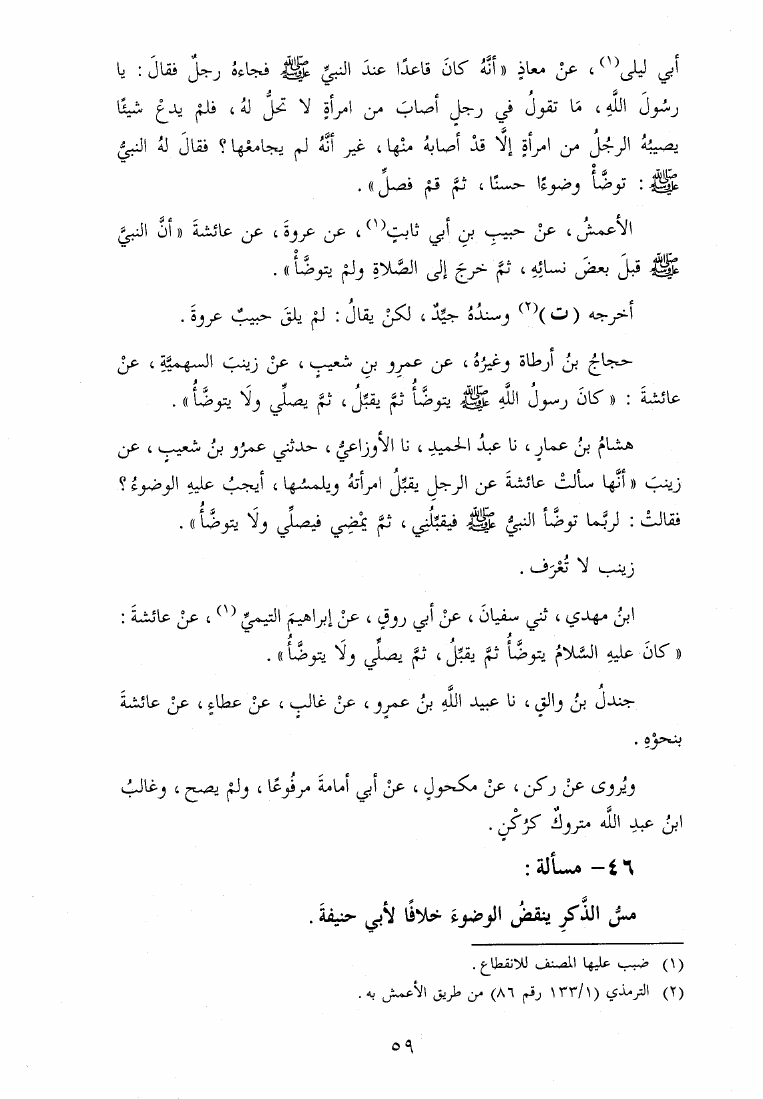 أبي ليلى(١)، عنْ معاذٍ «أنَّهُ كانَ قاعدًا عندَ النبيِّ ﷺ فجاءهُ رجلٌ فقالَ: يا
رسُولَ اللَّهِ، مَا تقولُ في رجلٍ أصابَ من امرأةٍ لا تحلُّ لهُ، فلمْ يدعْ شيئًا
يصيبُهُ الرجُلُ من امرأةٍ إلَّا قدْ أصابهُ منْها، غير أنَّهُ لم يجامعْها؟ فقالَ لهُ النبيُّ
ﷺ: توضَّأْ وضوءًا حسنًا، ثمَّ قمْ فصلِّ».
الأعمشُ، عنْ حبيبِ بنِ أبي ثابتٍ(١)، عن عروةَ، عن عائشةَ «أنَّ النبيَّ
ﷺ قبلَ بعضَ نسائِهِ، ثمَّ خرجَ إلى الصَّلاةِ ولمْ يتوضَّأْ».
أخرجه (ت)(٢) وسندُهُ جيِّدٌ، لكنْ يقالُ: لمْ يلقَ حبيبٌ عروةَ.
حجاجُ بنُ أرطاة وغيرُهُ، عن عمرِو بنِ شعيبٍ، عنْ زينبَ السهميَّةِ، عنْ
عائشةَ: «كانَ رسولُ اللَّهِ ﷺ يتوضَّأُ ثمَّ يقبِّلُ، ثمَّ يصلِّي ولَا يتوضَّأُ».
هشامُ بنُ عمارٍ، نا عبدُ الحميدِ، نا الأوزاعيُّ، حدثني عمرُو بنُ شعيبٍ، عن
زينبَ «أنَّها سألتْ عائشةَ عن الرجلِ يقبِّلُ امرأتهُ ويلمسُها، أيجبُ عليهِ الوضوءُ؟
فقالتْ: لربَّما توضَّأ النبيُّ ﷺ فيقبِّلُنِي، ثمَّ يمْضِي فيصلِّي ولَا يتوضَّأُ».
زينب لا تُعْرَف.
ابنُ مهدي، ثني سفيانَ، عنْ أبي روقٍ، عنْ إبراهيمَ التيميِّ(١)، عنْ عائشةَ:
«كانَ عليهِ السَّلامُ يتوضَّأُ ثمَّ يقبِّلُ، ثمَّ يصلِّي ولَا يتوضَّأُ».
جندلُ بنُ والقٍ، نا عبيد اللَّهِ بنُ عمرٍو، عنْ غالبٍ، عنْ عطاءٍ، عنْ عائشةَ
بنحوْهِ.
ويُروى عنْ ركن، عنْ مكحولٍ، عنْ أبي أمامةَ مرفُوعًا، ولمْ يصح، وغالبُ
ابنُ عبدِ اللَّه متروكٌ كرُكْنٍ.
٤٦- مسألة:
مسُّ الذَّكرِ ينقضُ الوضوءَ خلافًا لأبي حنيفةَ.
(١) ضبب عليها المصنف للانقطاع.
(٢) الترمذي (١٣٣/١ رقم ٨٦) من طريق الأعمش به.
٥٩